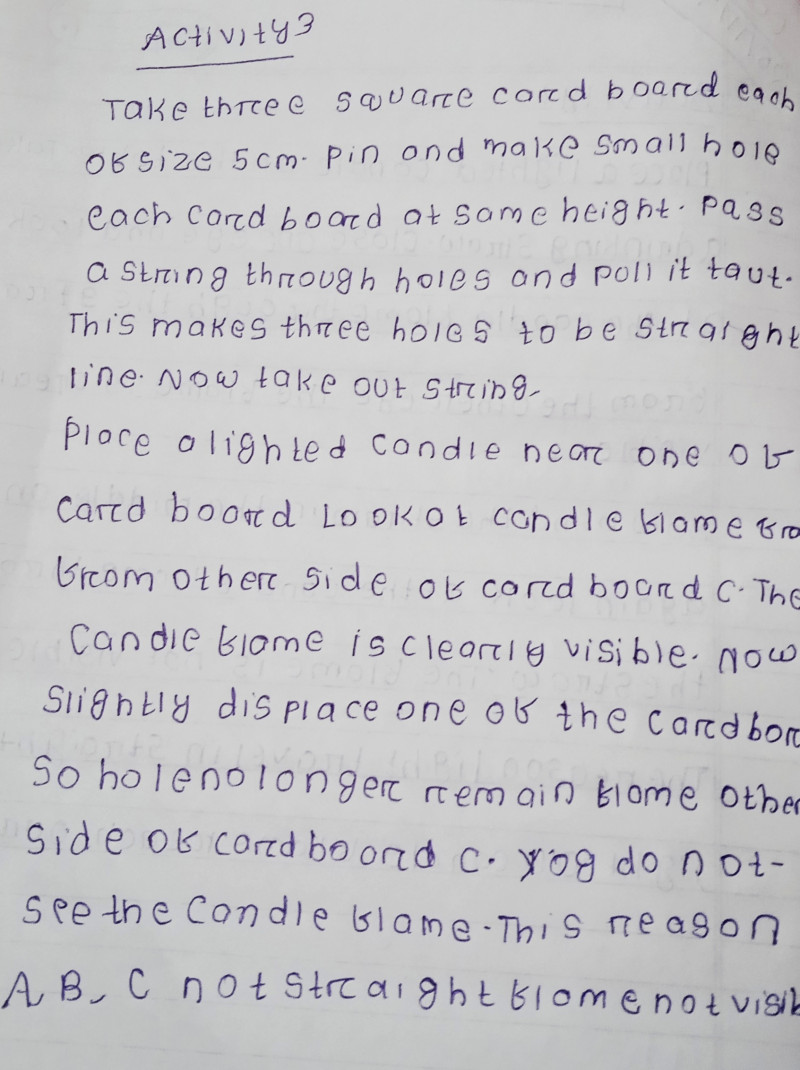 Activity 3
Take three square card board each
of size 5cm. pin and make small hole
each card board at same height. pass
a string through holes and poll it taut.
This makes three holes to be straight
line. Now take out string.
place a lighted candle near one of
card board Look at candle flame fro
from other side of card board C. The
candle flame is clearly visible. Now
slightly displace one of the cardbor
so hole no longer remain flame other
side of card board C. you do not-
see the candle flame. This reason
A, B, C not straight flame not visib